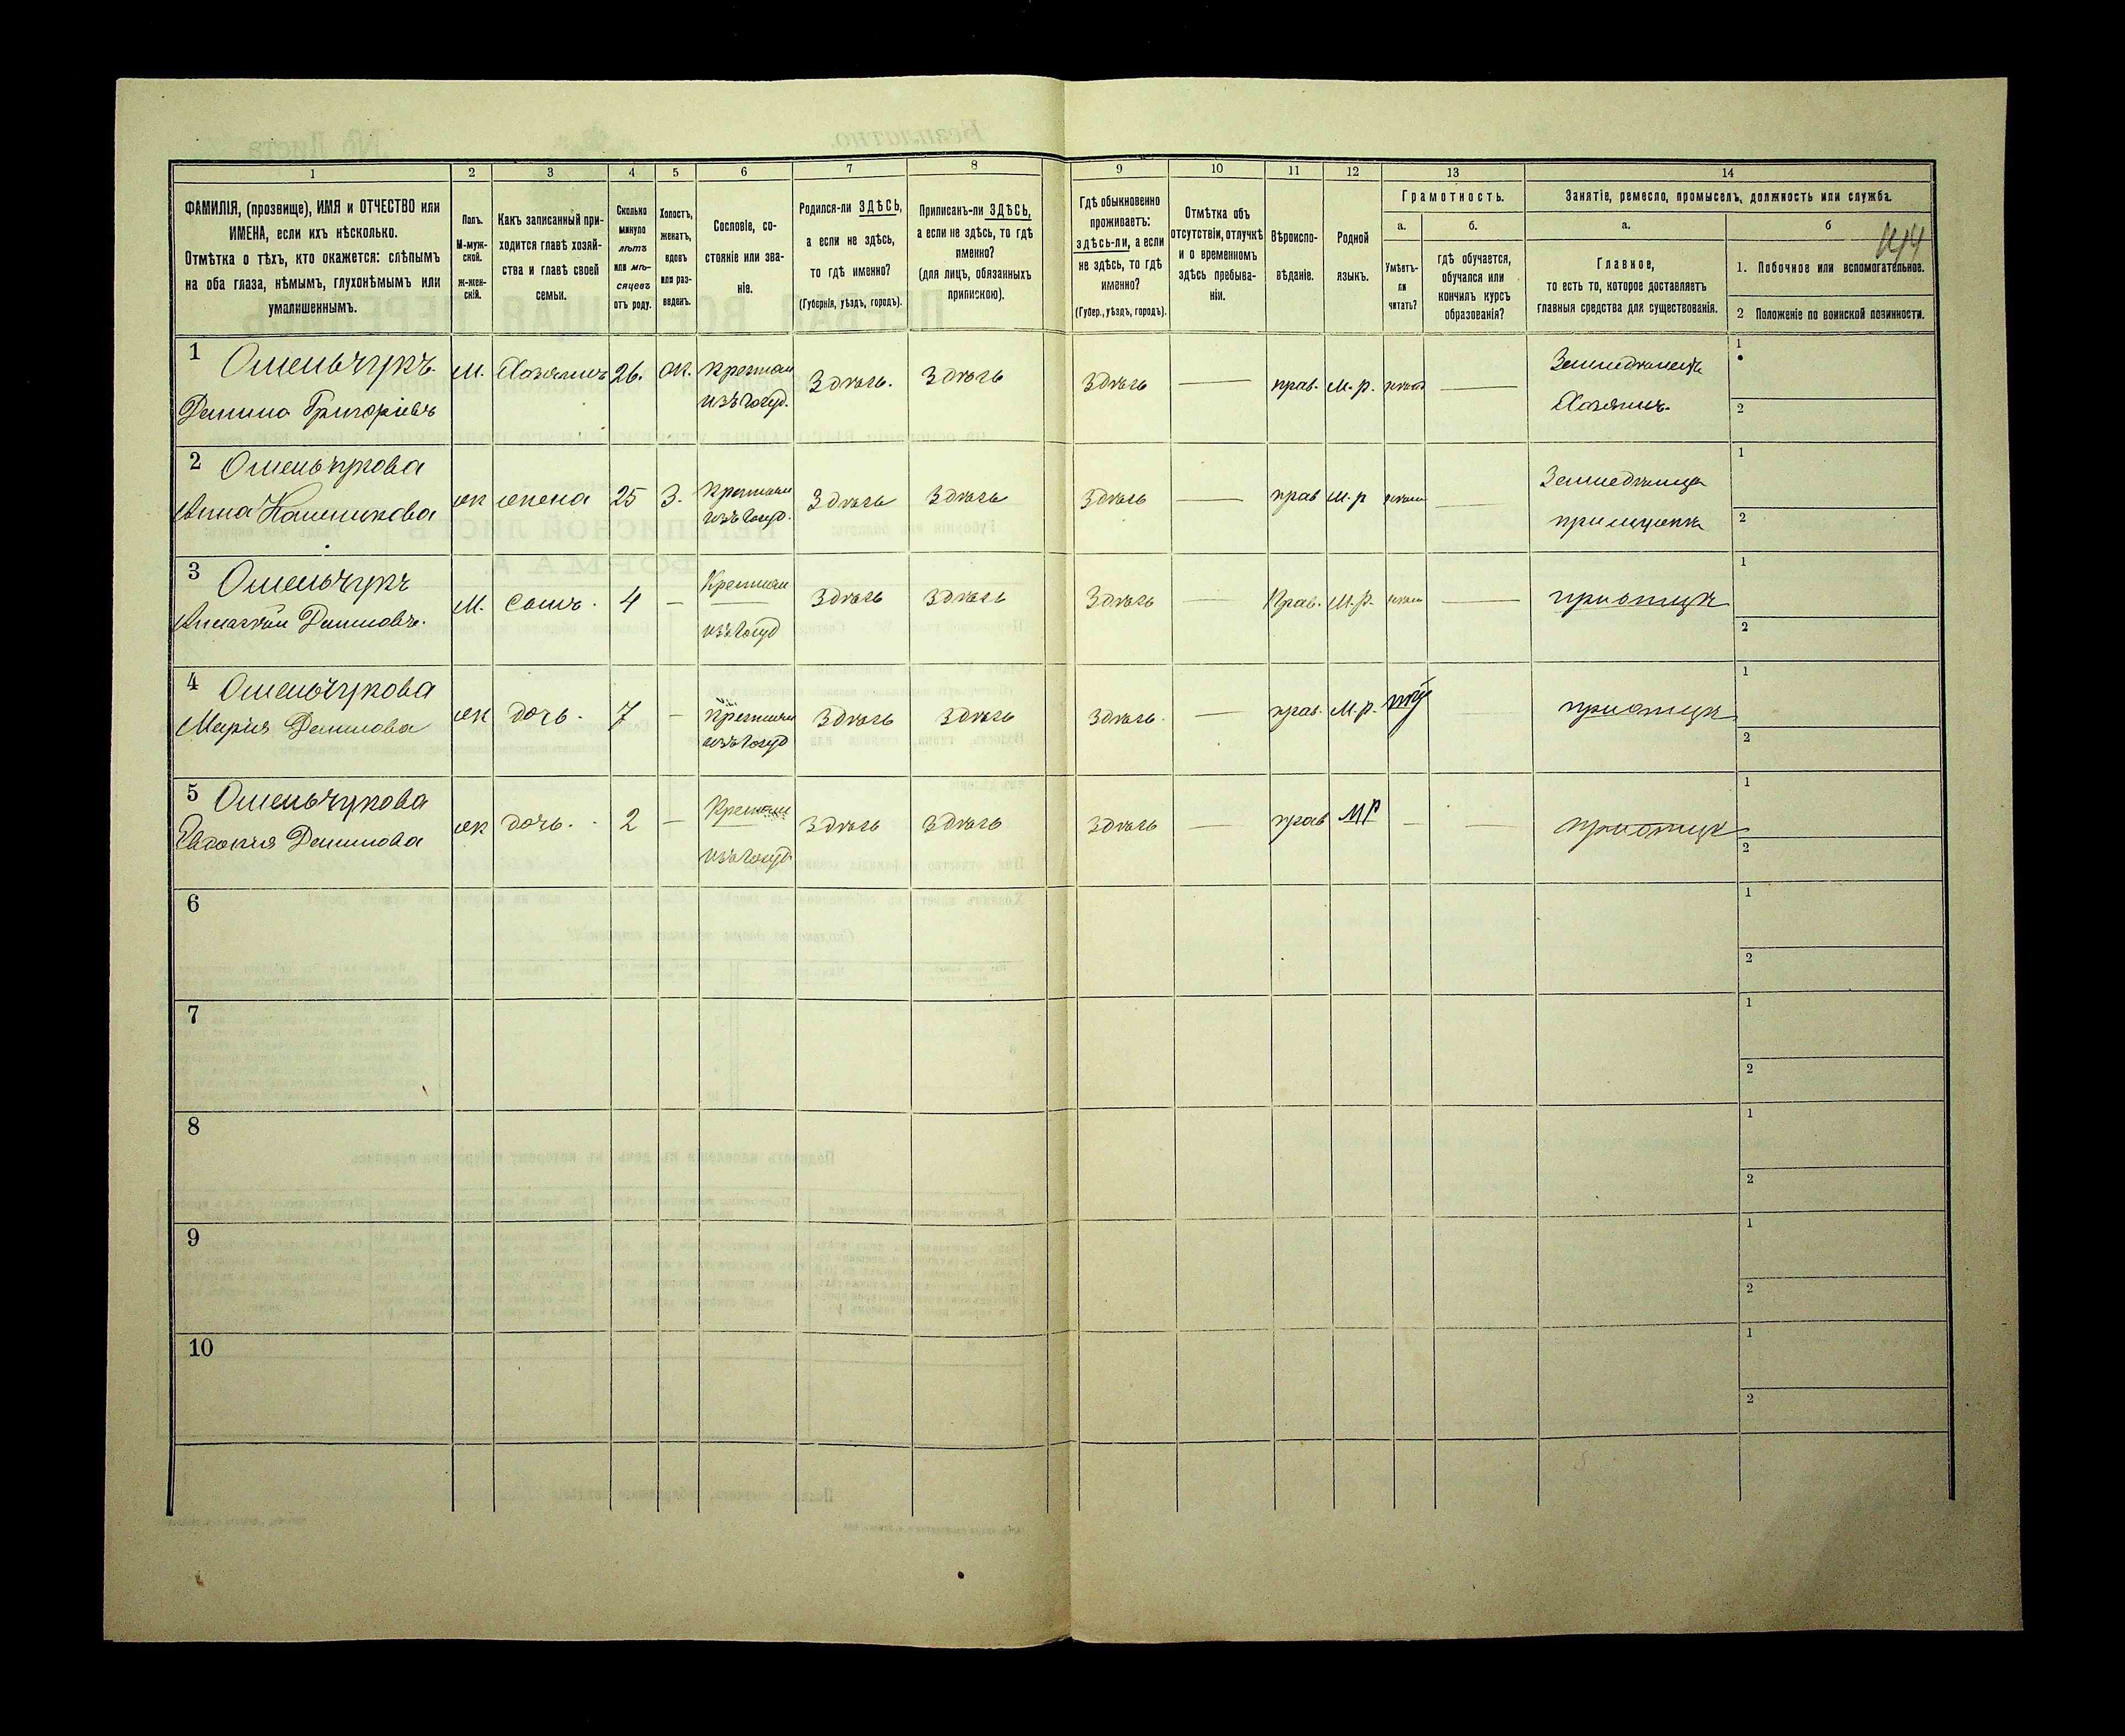 1 2 3 4 5 6 7 8 9 10 11 12 13 14
ФАМИЛІЯ, (прозвище), ИМЯ и ОТЧЕСТВО или
ИМЕНА, если ихъ нѣсколько.
Отмѣтка о тѣхъ, кто окажется: слѣпымъ
на оба глаза, нѣмымъ, глухонѣмымъ или
умалишеннымъ.
Полъ.
М-муж-
ской.
Ж-жен-
скій.
Какъ записанный при-
ходится главѣ хозяй-
ства и главѣ своей
семьи.
Сколько
минуло
лѣтъ
или мѣ-
сяцевъ
отъ роду.
Холостъ,
женатъ,
вдовъ
или раз-
веденъ.
Сословіе, со-
стояніе или зва-
ніе.
Родился-ли ЗДѢСЬ,
а если не здѣсь,
то гдѣ именно?
(Губернія, уѣздъ, городъ).
Приписанъ-ли ЗДѢСЬ,
а если не здѣсь, то гдѣ
именно?
(для лицъ, обязанныхъ
припискою).
Гдѣ обыкновенно
проживаетъ:
здѣсь-ли, а если
не здѣсь, то гдѣ
именно?
(Губер., уѣздъ, городъ).
Отмѣтка объ
отсутствіи, отлучкѣ
и о временномъ
здѣсь пребыва-
ніи.
Вѣроиспо-
вѣданіе.
Родной
языкъ.
Грамотность.
а.
Умѣетъ-
ли
читать?
б.
гдѣ обучается,
обучался или
кончилъ курсъ
образованія?
Занятіе, ремесло, промыселъ, должность или служба.
а.
Главное,
то есть то, которое доставляетъ
главныя средства для существованія.
б
1. Побочное или вспомогательное.
2 Положеніе по воинской повинности.
1 Омельчукъ
Данило Григоріевъ
М. Хозяинъ 26. Ж. Крестьян
изъ госуд.
Здѣсь. Здѣсь Здѣсь — прав. М.р. —
Земледѣлецъ
Хозяинъ
1
2
2 Омельчукова
Анна
ж жена 25 З. Крестьян
изъ госуд.
Здѣсь Здѣсь Здѣсь — прав М.р —
Земледѣлица
1
2
3 Омельчукъ
Даниловъ.
М. Сынъ. 4 — Крестьян
изъ госуд
Здѣсь Здѣсь Здѣсь — Прав. М.р. —
при отцѣ
1
2
4 Омельчукова
Марія Данилова
ж дочь. 7 — Крестьян
изъ госуд
Здѣсь Здѣсь Здѣсь. — прав. М.р. —
при отцѣ
1
2
5 Омельчукова
Данилова
ж дочь. 2 — Крестьян
изъ госуд
Здѣсь Здѣсь Здѣсь — прав МР — —
при отцѣ
1
2
6
1
2
7
1
2
8
1
2
9
1
2
10
1
2